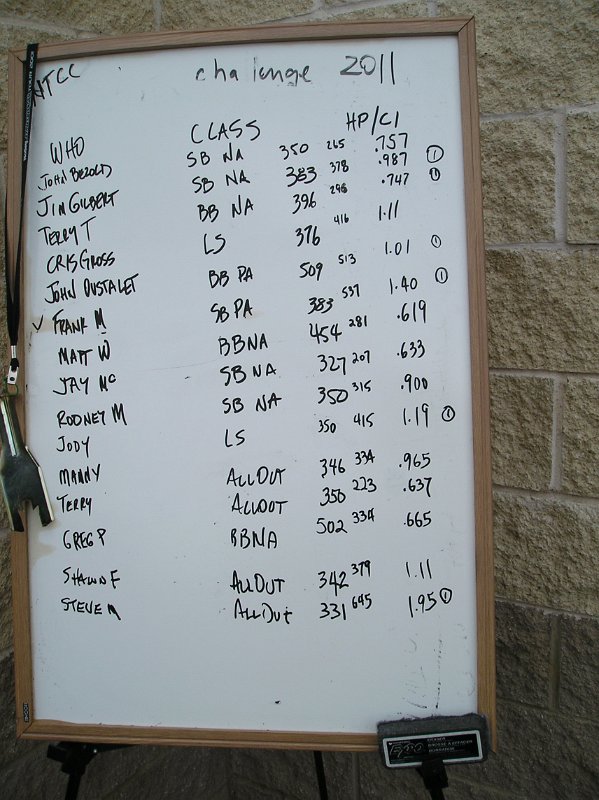 HTCC challenge 2011
WHO CLASS HP/CI
JOHN BEZOLD SB NA 350 265 .757
JIM GILBERT SB NA 383 378 .987 ①
TERRY T BB NA 396 296 .747 ①
CRIS GROSS LS 376 416 1.11
JOHN DUSTALET BB PA 509 513 1.01 ①
✓ FRANK M SB PA 383 537 1.40 ①
MATT W BBNA 454 281 .619
JAY Mc SB NA 327 207 .633
RODNEY M SB NA 350 315 .900
JODY LS 350 415 1.19 ①
MANNY ALLOUT 346 334 .965
TERRY ALLOUT 350 223 .637
GREG P BBNA 502 334 .665
SHAWN F ALLOUT 342 379 1.11
STEVE M ALLOUT 331 645 1.95 ①
EXPO